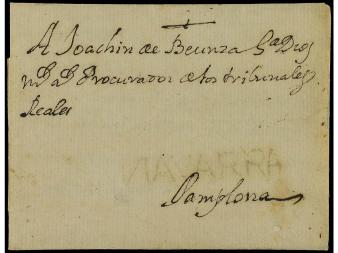 A Joachin de Beunza Gde Dios
ms as Procurador de los tribunales
Reales
Pamplona